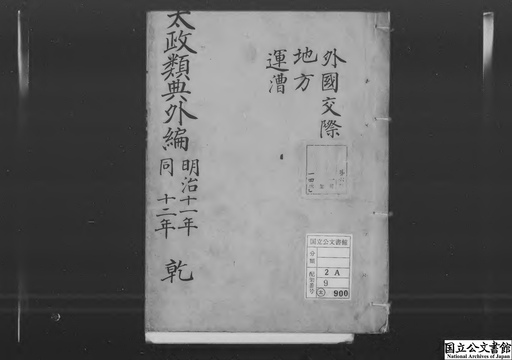 外國交際
地方
運漕
太政類典外編 明治十一年
同 十二年 乾
国立公文書館
分類
配架番号
2A
9
900
国立公文書館
National Archives of Japan